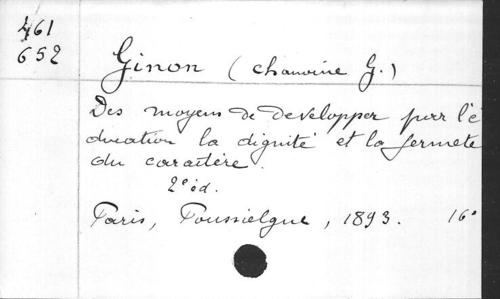 461
652
Ginon (chanoine G.)
Des moyens de développer par l'é
ducation la dignité et la fermeté
du caractère.
2e éd.
Paris, Poussielgue, 1893. 16°